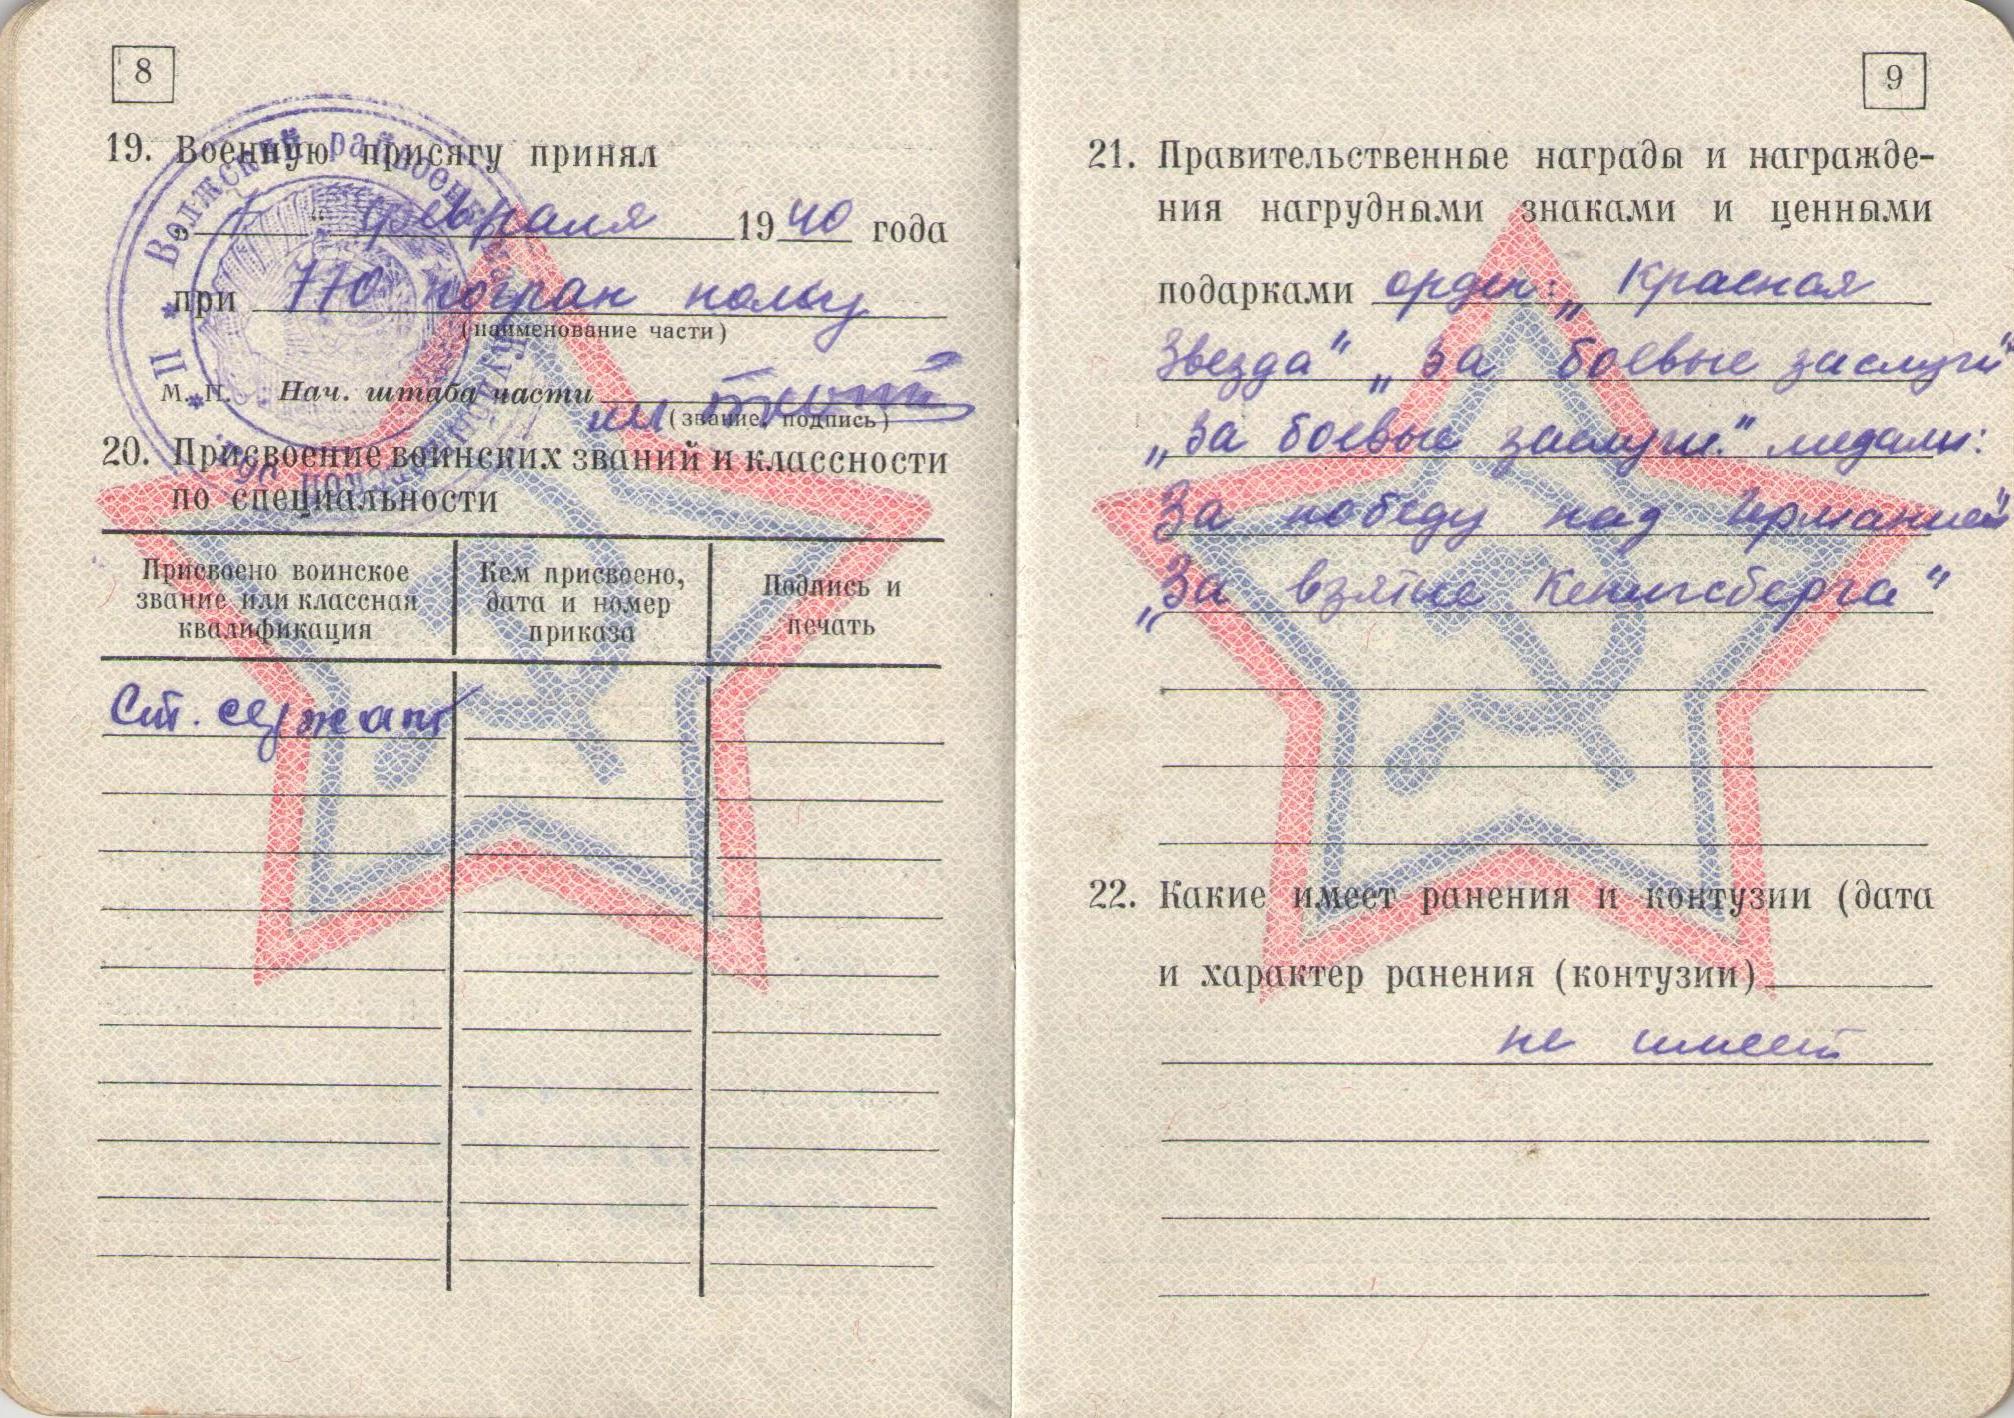 8
19. Военную присягу принял
„ “ февраля 1940 года
при 770 погран полку
(наименование части)
М. П. Нач. штаба части
(звание, подпись)
20. Присвоение воинских званий и классности
по специальности
Присвоено воинское
звание или классная
квалификация
Кем присвоено,
дата и номер
приказа
Подпись и
печать
Ст. сержант
Волжский рай
9
21. Правительственные награды и награжде-
ния нагрудными знаками и ценными
подарками орден: „Красная
Звезда" „За боевые заслуги"
„За боевые заслуги." медали:
За победу над Германией"
„За взятие Кенигсберга"
22. Какие имеет ранения и контузии (дата
и характер ранения (контузии)
не имеет